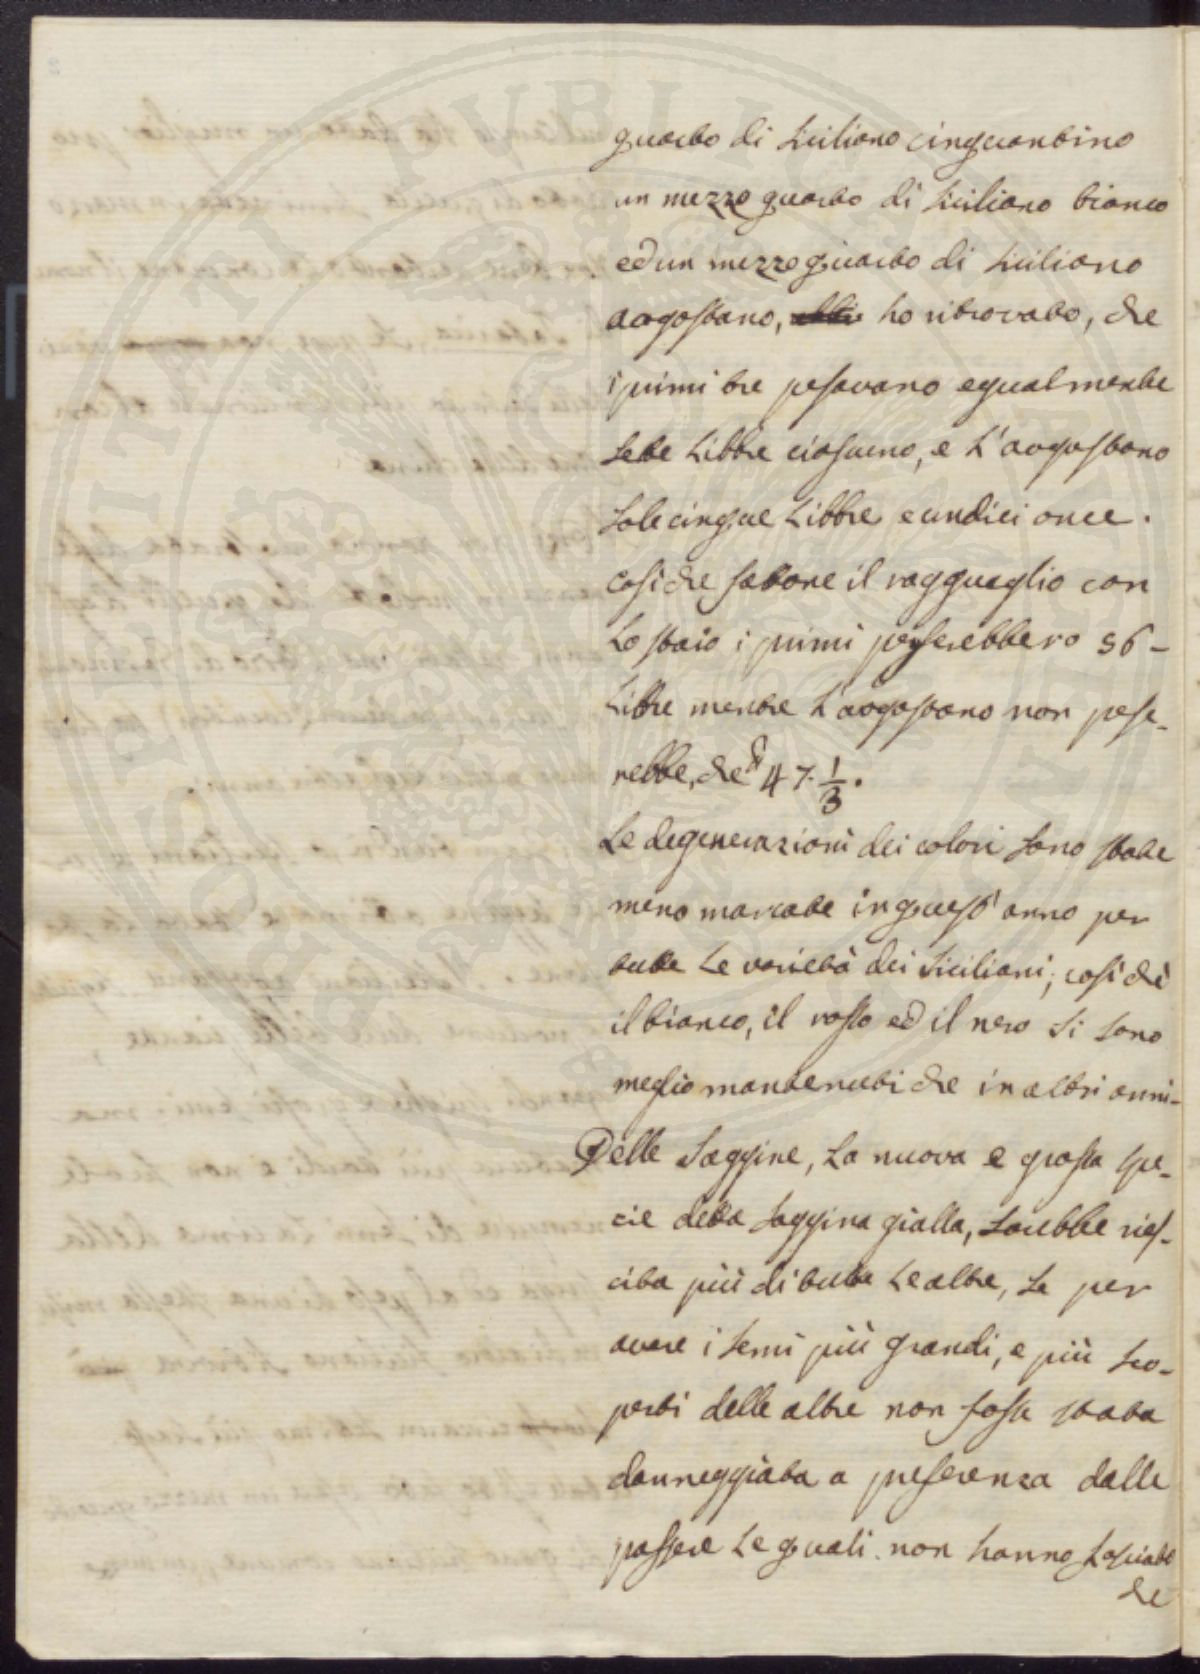 quarto di siciliano cinquantino
un mezzo quarto di siciliano bianco
ed un mezzo quarto di siciliano
aogostano, ho ritrovato, che
i primi tre pesavano egualmente
sette Libbre ciascuno, e L'aogostano
sole cinque Libbre e undici once.
cosi che fattone il ragguaglio con
Lo staio i primi peserebbero 56-
Libbre mentre L'aogostano non pese-
rebbe, che 47. 1/3.
Le degenerazioni dei colori sono state
meno marcate in quest' anno per
tutte Le varietà dei siciliani; cosi chè
il bianco, il rosso ed il nero si sono
meglio mantenuti che in altri anni-
Delle Saggine, La nuova e grossa spe-
cie detta saggina gialla, sarebbe ries-
cita più di tutte Le altre, se per
avere i semi più grandi, e più sco-
perti delle altre non fosse stata
danneggiata a preferenza dalle
passere Le quali non hanno lasciato
che